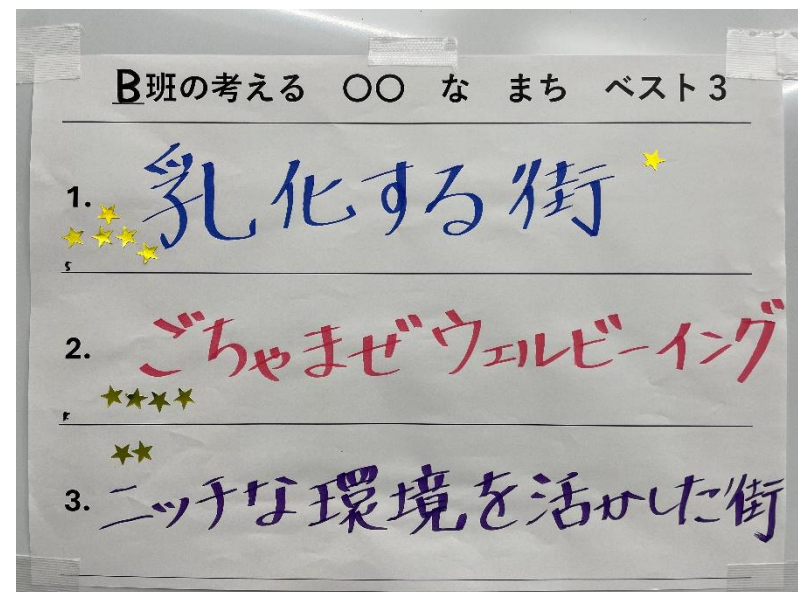 B班の考える 〇〇 な まち ベスト3
1. 乳化する街
2. ごちゃまぜウェルビーイング
3. ニッチな環境を活かした街